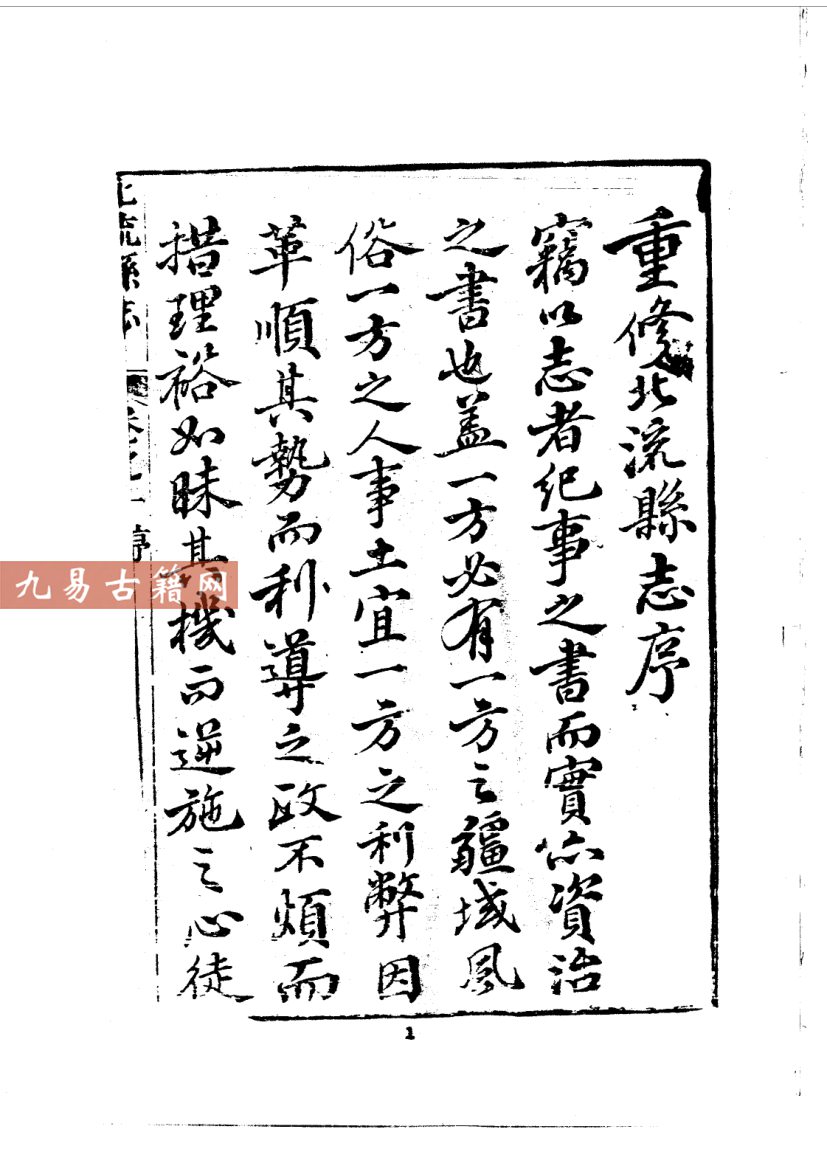 重修北流縣志序
竊以志者紀事之書而實以資治
之書也盖一方必有一方之疆域風
俗一方之人事土宜一方之利弊因
革順其勢而利導之政不煩而
措理裕如昧其機而逆施之心徒
北流縣志 卷之一 序
九易古籍网
1